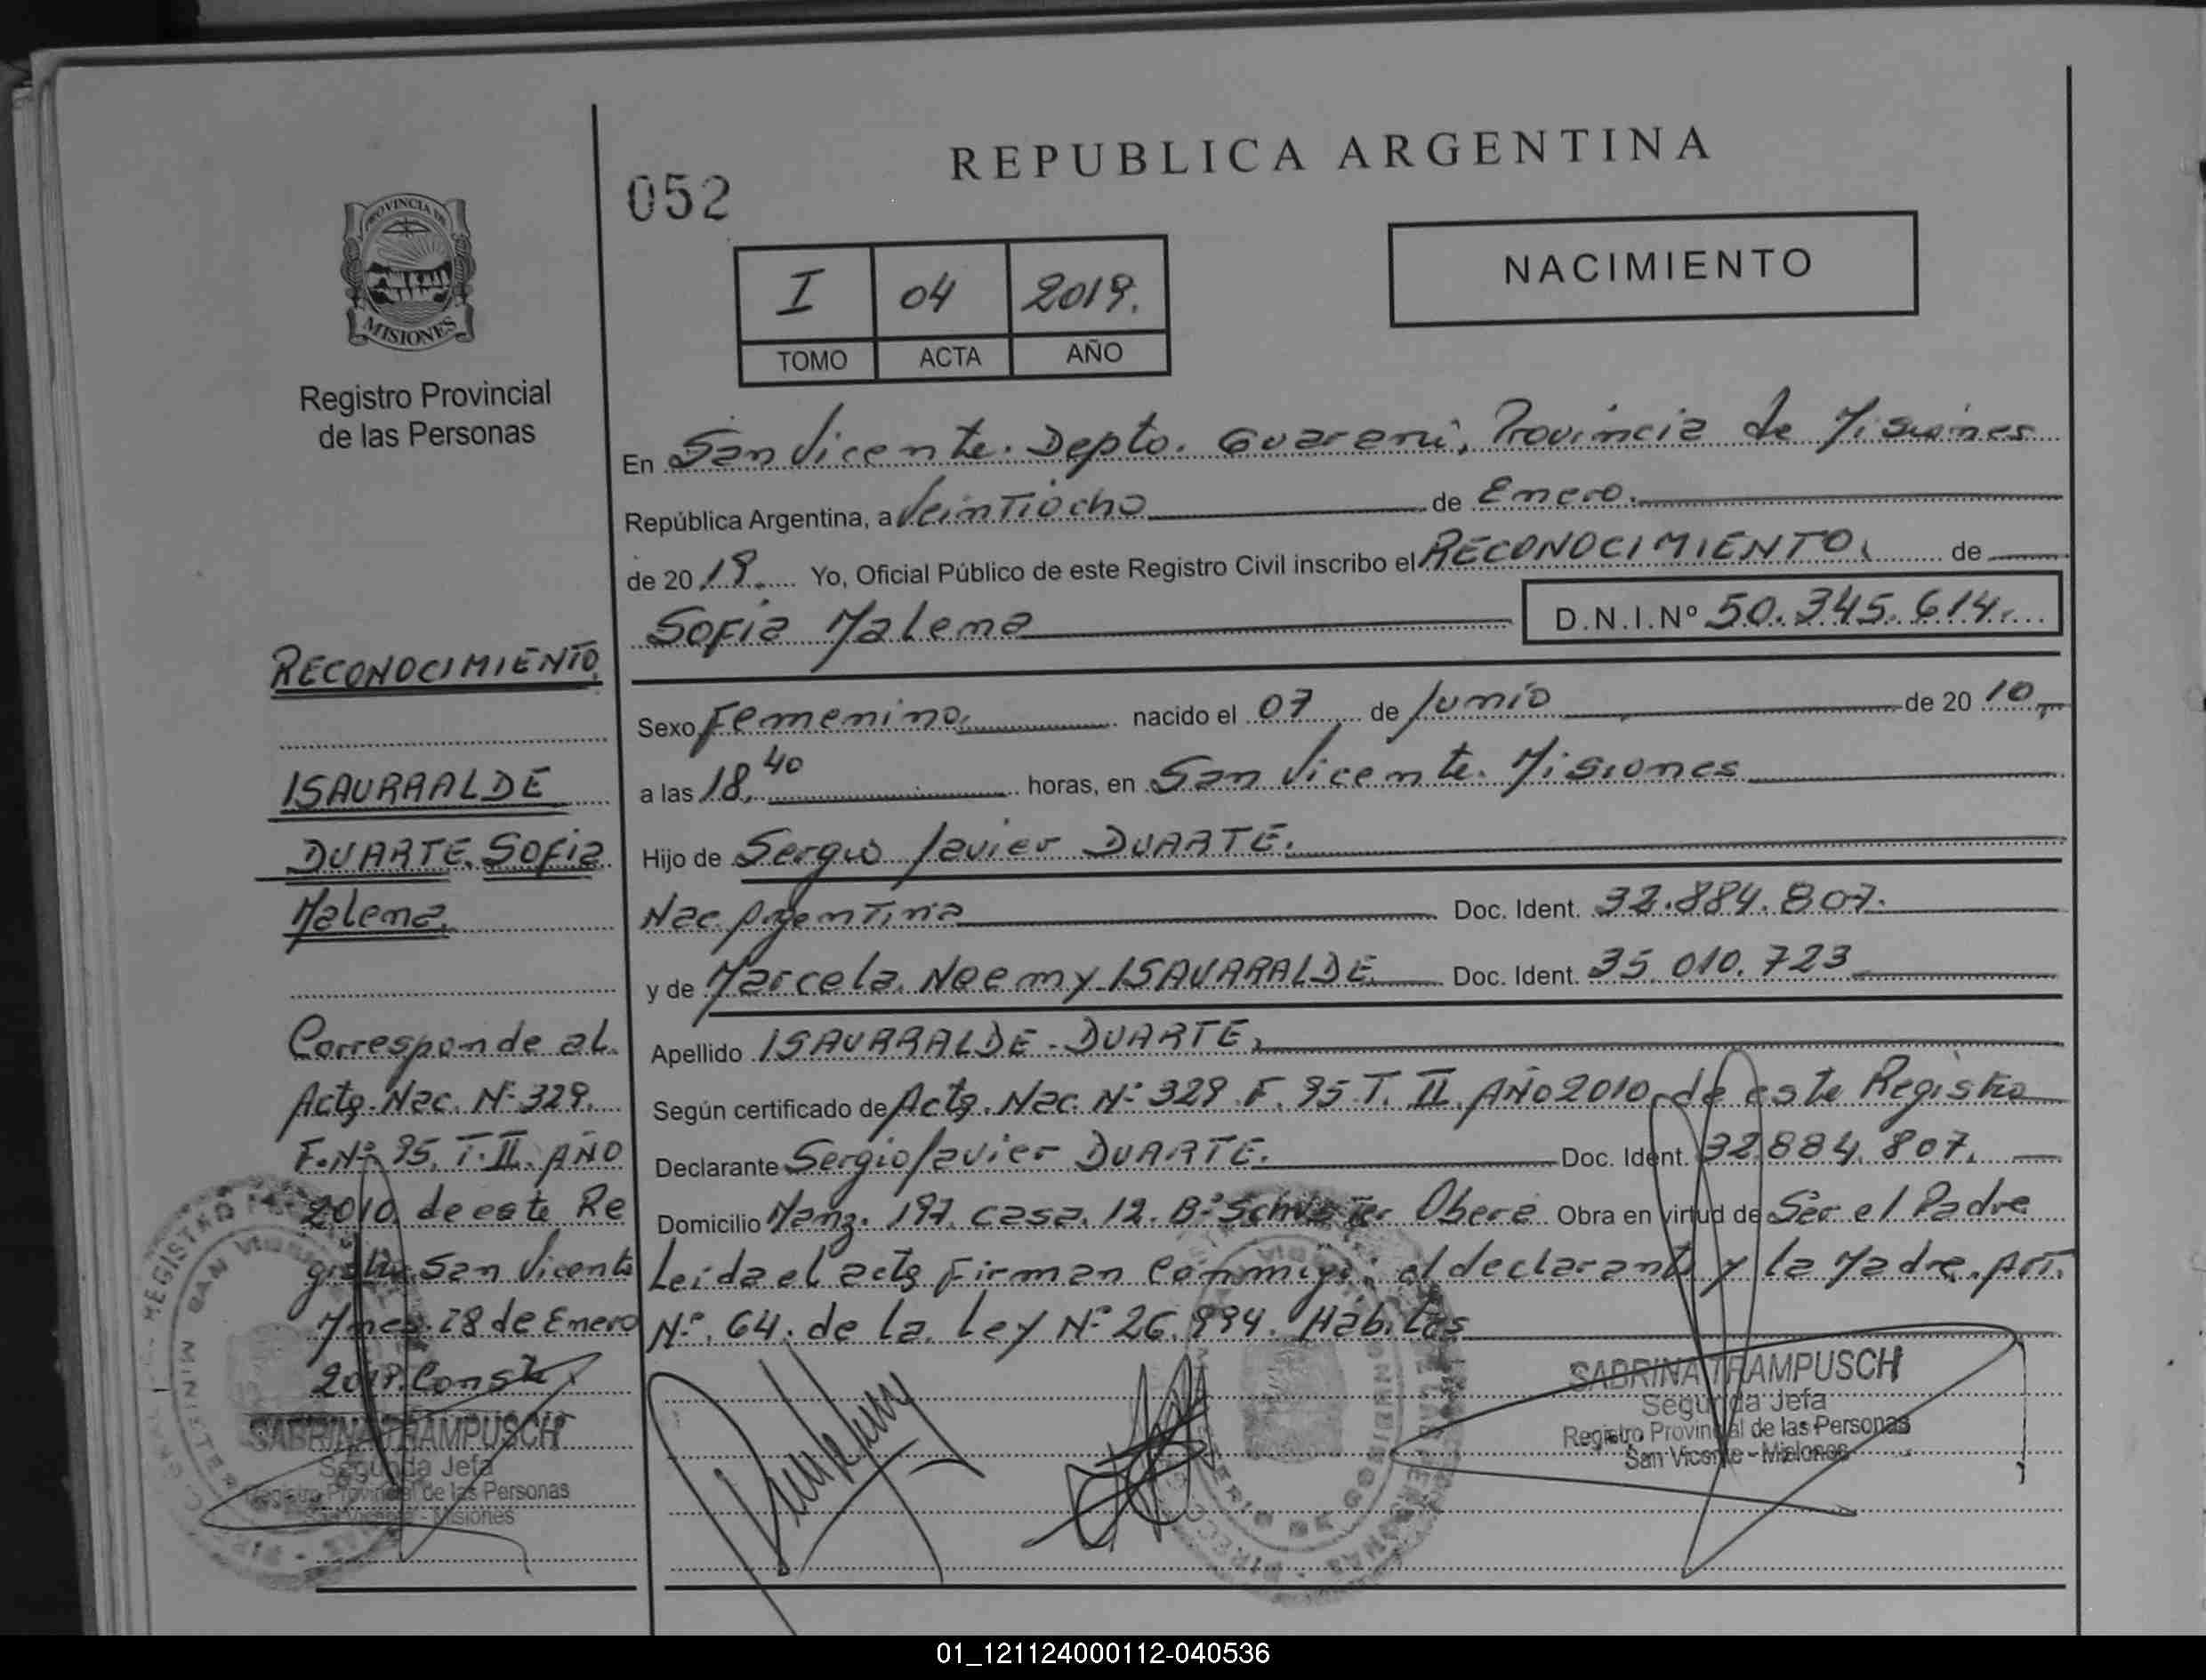 REPUBLICA ARGENTINA
052
NACIMIENTO
I 04 2019.
TOMO ACTA AÑO
PROVINCIA DE
MISIONES
Registro Provincial
de las Personas
En San Vicente. Depto. Guarani, Provincia de Misiones
República Argentina, a Veintiocho de Enero.
de 20 19. Yo, Oficial Público de este Registro Civil inscribo el RECONOCIMIENTO. de
Sofia Malena D.N.I.Nº 50.345.614.
Sexo Femenino. nacido el 07 de Junio de 20 10
a las 18,40 horas, en San Vicente. Misiones
Hijo de Sergio Javier DUARTE.
Nac. Argentina Doc. Ident. 32.884.807.
y de Marcela Noemy ISAURRALDE Doc. Ident. 35.010.723
Apellido ISAURRALDE-DUARTE,
Según certificado de Acta. Nac. Nº 329. F. 95 T. II. AÑO 2010, de este Registro
Declarante Sergio Javier DUARTE. Doc. Ident. 32.884.807.
Domicilio Manz. 197. casa. 12. Bº Obera Obra en virtud de Ser el Padre
Leida el acta firman conmigo, el declarante y la Madre. Art.
Nº. 64. de la Ley Nº 26.994. Habiles
SABRINA TRAMPUSCH
Segunda Jefa
Registro Provincial de las Personas
San Vicente - Misiones
RECONOCIMIENTO
ISAURRALDE
DUARTE. Sofia
Malena.
Corresponde al.
Acta. Nac. Nº 329.
F. Nº 95. T. II. AÑO
2010 de este Re
San Vicente
28 de Enero
2019. Conste
SABRINA TRAMPUSCH
Segunda Jefa
Registro Provincial de las Personas
San Vicente - Misiones
01_121124000112-040536